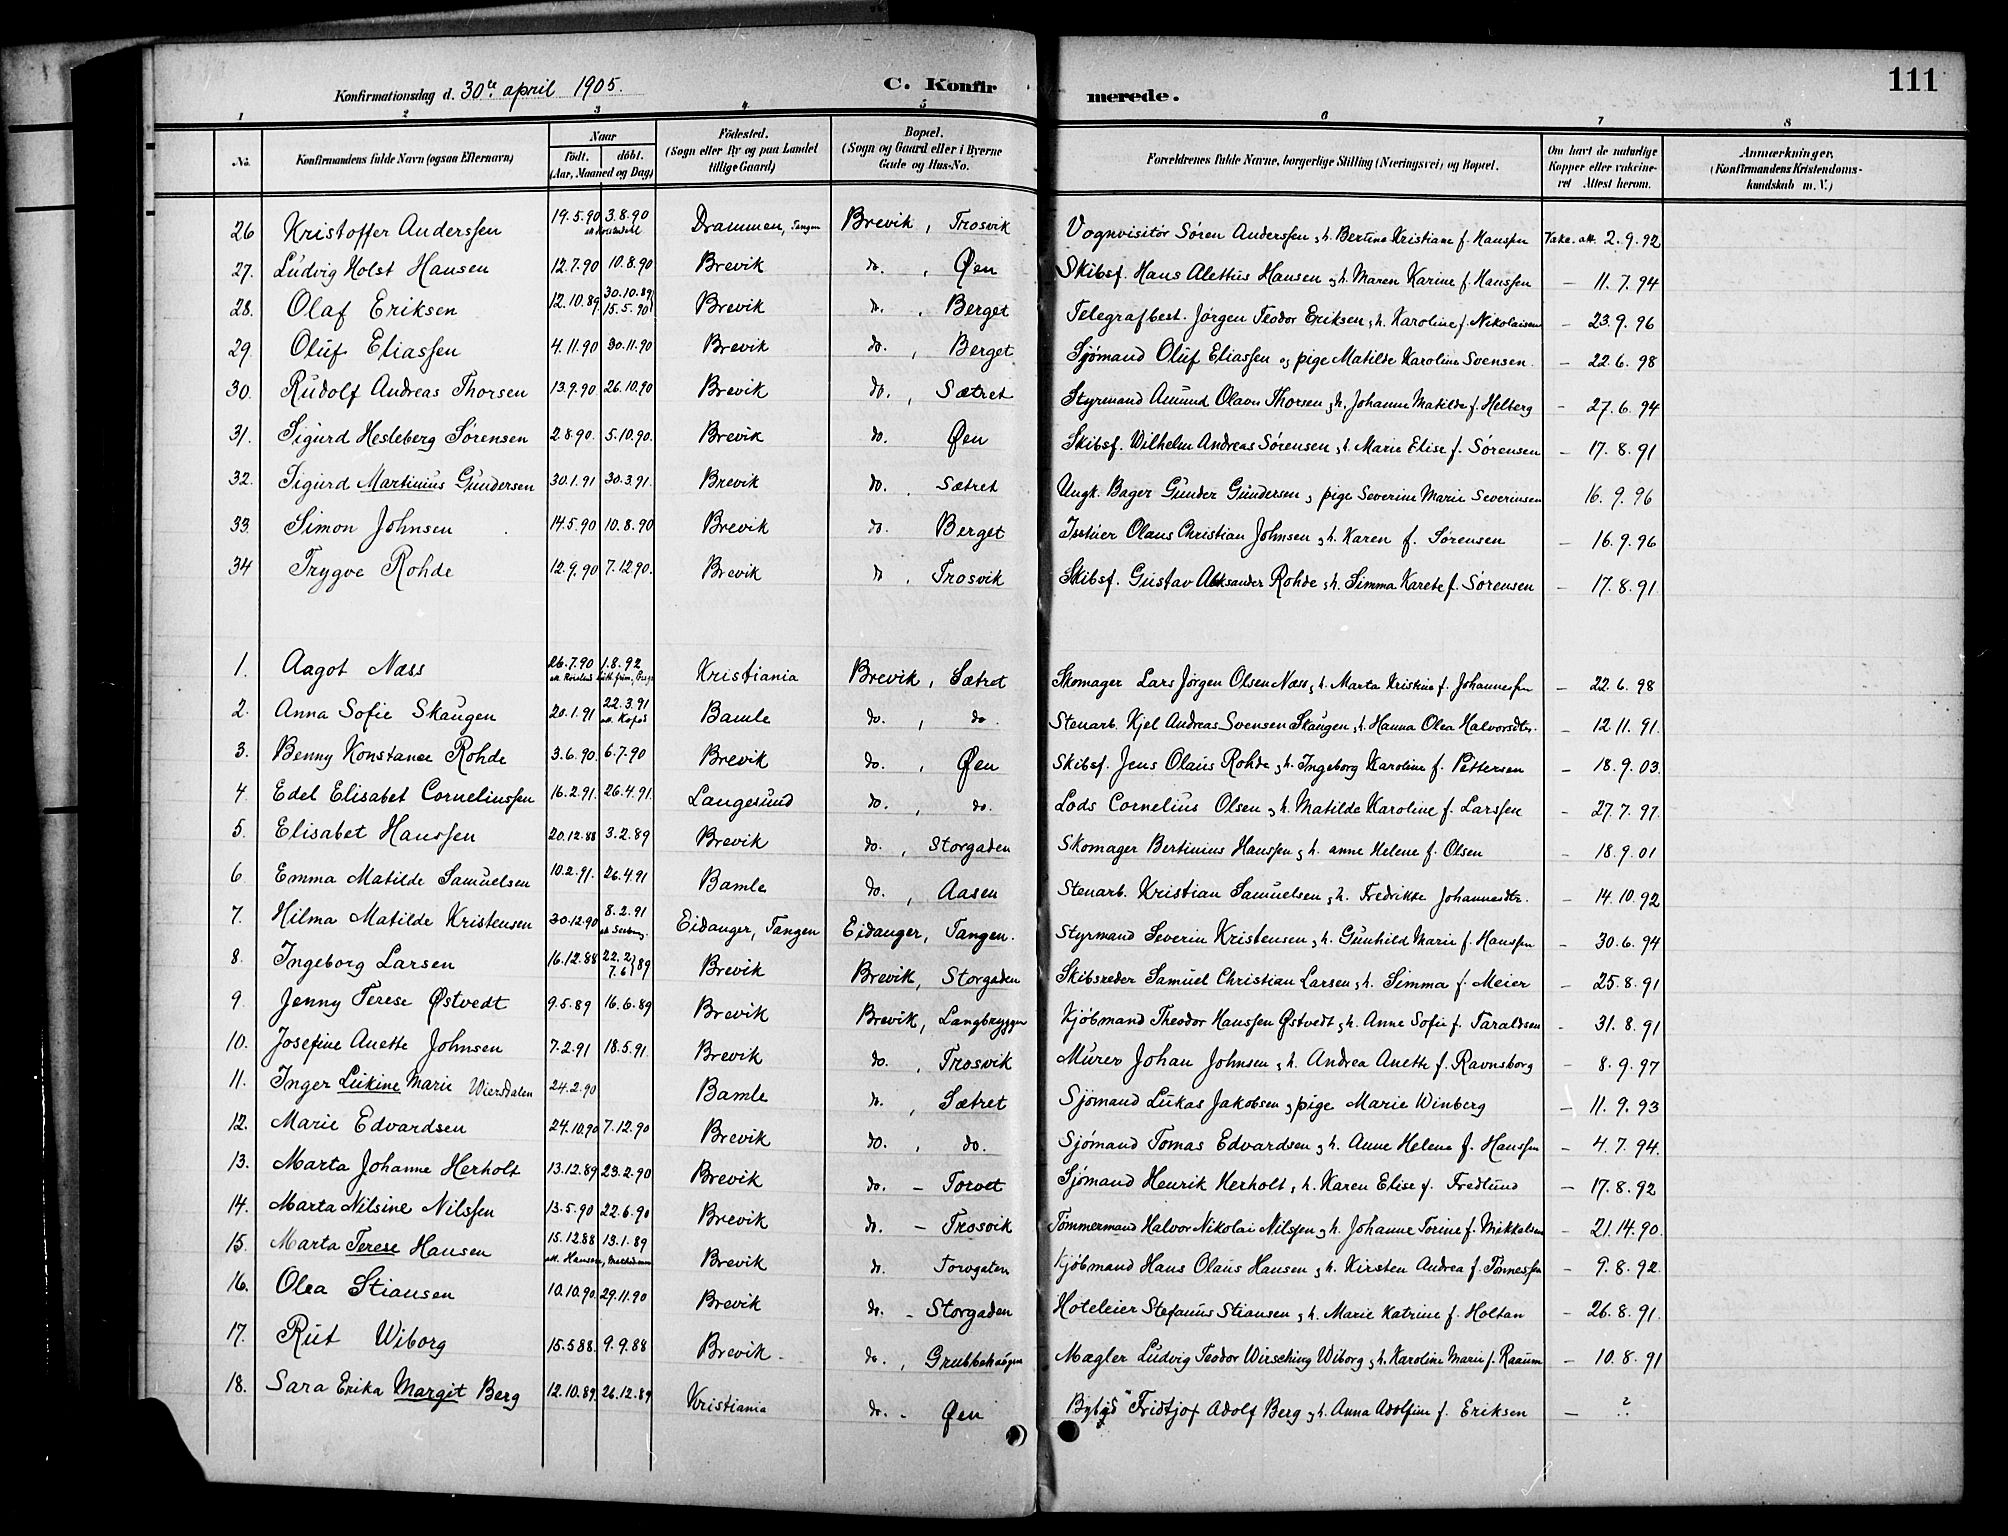 111
Konfirmationsdag d. 30te april 1905. C. Konfirmerede.
1 2 3 4 5 6 7 8
No. Konfirmandens fulde Navn (ogsaa Efternavn) Naar födt. döbt. (Aar, Maaned og Dag) Födested. (Sogn eller By og paa Landet tillige Gaard) Bopæl. (Sogn og Gaard eller i Byerne Gade og Hus-No. Forældrenes fulde Navne, borgerlige Stilling (Næringsvei) og Bopæl. Om havt de naturlige Kopper eller vakcineret Attest herom. Anmærkninger, (Konfirmandens Kristendomskundskab m. V.)
26 Kristoffer Anderssen 19.5.90 3.8.90 Drammen, Tangen Brevik, Trosvik Vognvisitör Sören Anderssen, h. Bertine Kristiane f. Hanssen Vakc. att. 2.9.92
27. Ludvig Holst Hansen 12.7.90 10.8.90 Brevik do. , Øen Skibsf. Hans Alettus Hansen, h. Maren Karine f. Hanssen – 11.7.94
28. Olaf Eriksen 12.10.89 30.10.89 15.5.90 Brevik do. , Berget Telegrafbest. Jörgen Teodor Eriksen, h. Karoline f. Nikolaisen – 23.9.96
29. Oluf Eliassen 4.11.90 30.11.90 Brevik do. , Berget Sjömand Oluf Eliassen og pige Matilde Karoline Svensen. – 22.6.98
30. Rudolf Andreas Thorsen 13.9.90 26.10.90 Brevik do. , Sætret Styrmand Amund Olavn Thorsen, h. Johanne Matilde f. Helberg – 27.6.94
31. Sigurd Hesleberg Sörensen 2.8.90. 5.10.90. Brevik do. Øen Skibsf. Wilhelm Andreas Sörensen, h. Marie Elise f. Sörensen – 17.8.91
32. Sigurd Martinius Gundersen 30.1.91 30.3.91. Brevik do. , Sætret Ungk. Bager Gunder Gundersen, pige Severine Marie Severinsen 16.9.96
33. Simon Johnsen 14.5.90 10.8.90 Brevik do. Berget Olaus Christian Johnsen, h. Karen f. Sörensen – 16.9.96
34 Trygve Rohde 12.9.90 7.12.90. Brevik do , Trosvik Skibsf. Gustav Aleksander Rohde, h. Simma Karete f. Sörensen – 17.8.91
1. Aagot Næss 26.7.90 1.8.92 Kristiania Brevik, Sætret Skomager Lars Jörgen Olsen Næss, h. Marta Kristine f. Johannessen – 22.6.98
2. Anna Sofie Skaugen 20.1.91 22.3.91 Bamle do. , do. Stenarb. Kjel Andreas Svensen Skaugen, h. Hanna Olea Halvorsdtr. – 12.11.91.
3. Benny Konstance Rohde 3.6.90. 6.7.90 Brevik do. , Øen Skibsf. Jens Olaus Rohde, h. Ingeborg Karoline f. Pettersen – 18.9.03.
4. Edel Elisabet Corneliussen 16.2.91. 26.4.91. Langesund do. , do. Lods Cornelius Olsen, h. Matilde Karoline f. Larssen – 27.7.97.
5. Elisabet Hanssen 20.12.88 3.2.89 Brevik do. , Storgaden Skomager Bertinius Hanssen, h. anne Helene f. Olsen – 18.9.01
6. Emma Matilde Samuelsen 10.2.91. 26.4.91 Bamle do. , Aasen Stenarb. Kristian Samuelsen, h. Fredrikke Johannesdtr. – 14.10.92
7. Hilma Matilde Kristensen 30.12.90 8.2.91 Eidanger, Tangen Eidanger, Tangen. Styrmand Severin Kristensen, h. Gunhild Marie f. Hanssen – 30.6.94
8. Ingeborg Larsen 16.12.88 22.2 7.6 89 Brevik Brevik, Storgaden Skibsreder Samuel Christian Larsen, h. Simma f. Meier – 25.8.91
9. Jenny Terese Østvedt 9.5.89 16.6.89 Brevik Brevik, Langbryggen Kjöbmand Theodor Hanssen Østvedt, h. Anne Sofie f. Taraldsen – 31.8.91
10. Josefine Anette Johnsen 7.2.91 18.5.91. Brevik do. , Trosvik Murer Johan Johnsen, h. Andrea Anette f. Ravnsborg – 8.9.97
11. Inger Lukine Marie Wiersdalen 24.2.90 Bamle do. , Sætret Sjömand Lukas Jakobsen, pige Marie Winberg – 11.9.93
12. Marie Edvardsen 24.10.90 7.12.90 Brevik do. , do. Sjömand Tomas Edvardsen, h. Anne Helene f. Hanssen – 4.7.94.
13. Marta Johanne Herholt 13.12.89 23.2.90 Brevik do. – Torvet Sjömand Henrik Herholt, h. Karen Elise f. Fredlund – 17.8.92
14. Marta Nilsine Nilssen 13.5.90 22.6.90 Brevik do. – Trosvik Tömmermand Halvor Nikolai Nilssen, h. Johanne Torine f. Mikkelsen – 21.14.90.
15. Marta Terese Hansen 15.12.88 13.1.89 Brevik do. Torvgaten Kjöbmand Hans Olaus Hansen, h. Kirsten Andrea f. Tönnessen – 9.8.92.
16. Olea Stiansen 10.10.90. 29.11.90 Brevik do. – Storgaden Hoteleier Stefanus Stiansen, h. Marie Katrine f. Holtan – 26.8.91.
17. Rut Wiborg 15.5.88. 9.9.88 Brevik – do. , Grubbehaugen Mægler Ludvig Teodor Wirsching Wiborg, h. Karoline Marie f. Raaum – 10.8.91
18. Sara Erika Margit Berg 12.10.89. 26.12.89 Kristiania do. – Øen Fridtjof Adolf Berg, h. Anna Adolfine f. Eriksen – ?